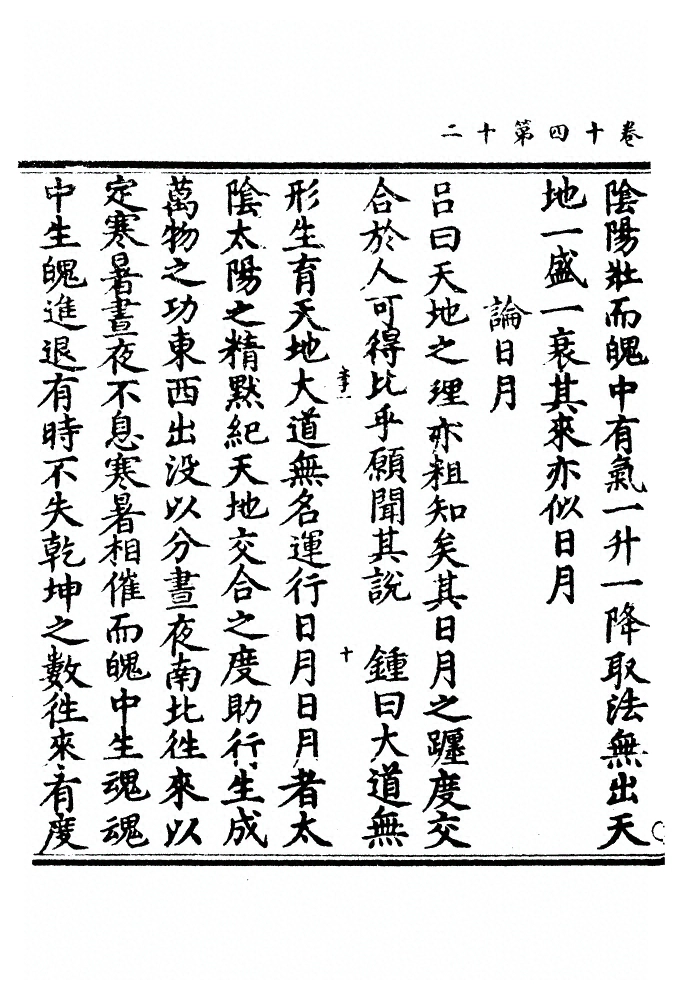 卷十四第十二
陰陽壯而魄中有氣一升一降取法無出天
地一盛一衰其來亦似日月
論日月
呂曰天地之理亦粗知矣其日月之躔度交
合於人可得比乎願聞其說　鍾曰大道無
十
形生育天地大道無名運行日月日月者太
陰太陽之精默紀天地交合之度助行生成
萬物之功東西出没以分晝夜南北徃來以
定寒暑晝夜不息寒暑相催而魄中生魂魂
中生魄進退有時不失乾坤之數徃來有度